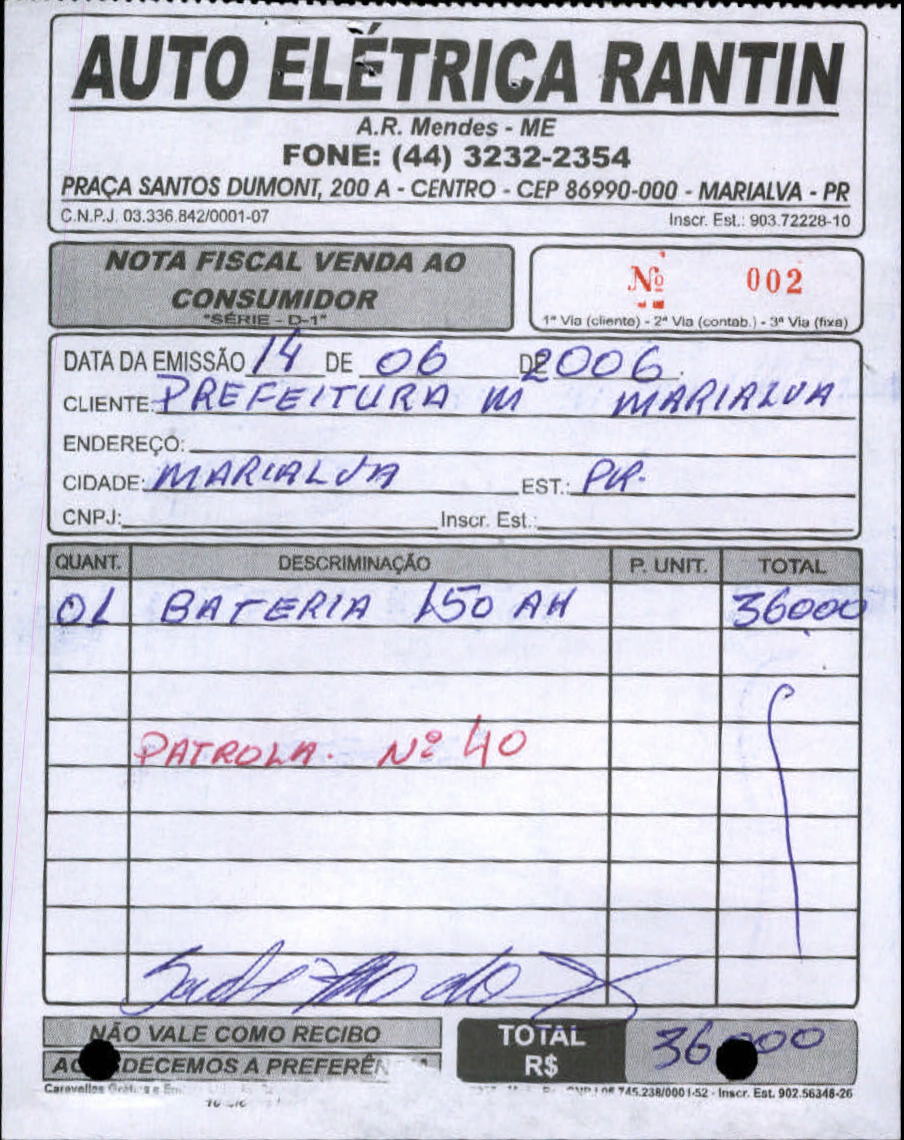 AUTO ELÉTRICA RANTIN
A.R. Mendes - ME
FONE: (44) 3232-2354
PRAÇA SANTOS DUMONT, 200 A - CENTRO - CEP 86990-000 - MARIALVA - PR
C.N.P.J. 03.336.842/0001-07 Inscr. Est.: 903.72228-10
NOTA FISCAL VENDA AO
CONSUMIDOR
"SÉRIE - D-1"
Nº 002
1ª Via (cliente) - 2ª Via (contab.) - 3ª Via (fixa)
DATA DA EMISSÃO 14 DE 06 DE 2006
CLIENTE: PREFEITURA M MARIALVA
ENDEREÇO:
CIDADE: MARIALVA EST.: PR.
CNPJ: Inscr. Est.:
QUANT. DESCRIMINAÇÃO P. UNIT. TOTAL
01 BATERIA 150 AH 36000
PATROLA. Nº 40
NÃO VALE COMO RECIBO
DECEMOS A PREFERÊNCIA
TOTAL
R$ 36000
Caravellas 745.238/0001-52 - Inscr. Est. 902.56348-26